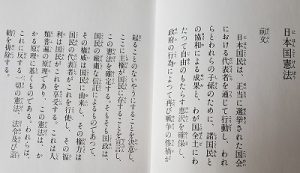 日本国憲法
前文
日本国民は、正当に選挙された国会
における代表者を通じて行動し、われ
らとわれらの子孫のために、諸国民と
の協和による成果と、わが国全土にわ
たつて自由のもたらす恵沢を確保し、
政府の行為によつて再び戦争の惨禍が
起ることのないやうにすることを決意し、
ここに主権が国民に存することを宣言し、
この憲法を確定する。そもそも国政は、
国民の厳粛な信託によるものであつて、
その権威は国民に由来し、その権力は
国民の代表者がこれを行使し、その福
利は国民がこれを享受する。これは人
類普遍の原理であり、この憲法は、か
かる原理に基くものである。われらは、
これに反する一切の憲法、法令及び詔
勅を排除する。